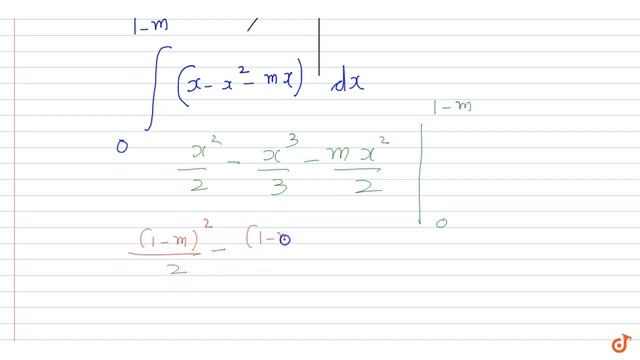 1-m
∫ (x - x² - mx) dx
0
x²/2 - x³/3 - mx²/2 | 1-m
0
(1-m)²/2 - (1-